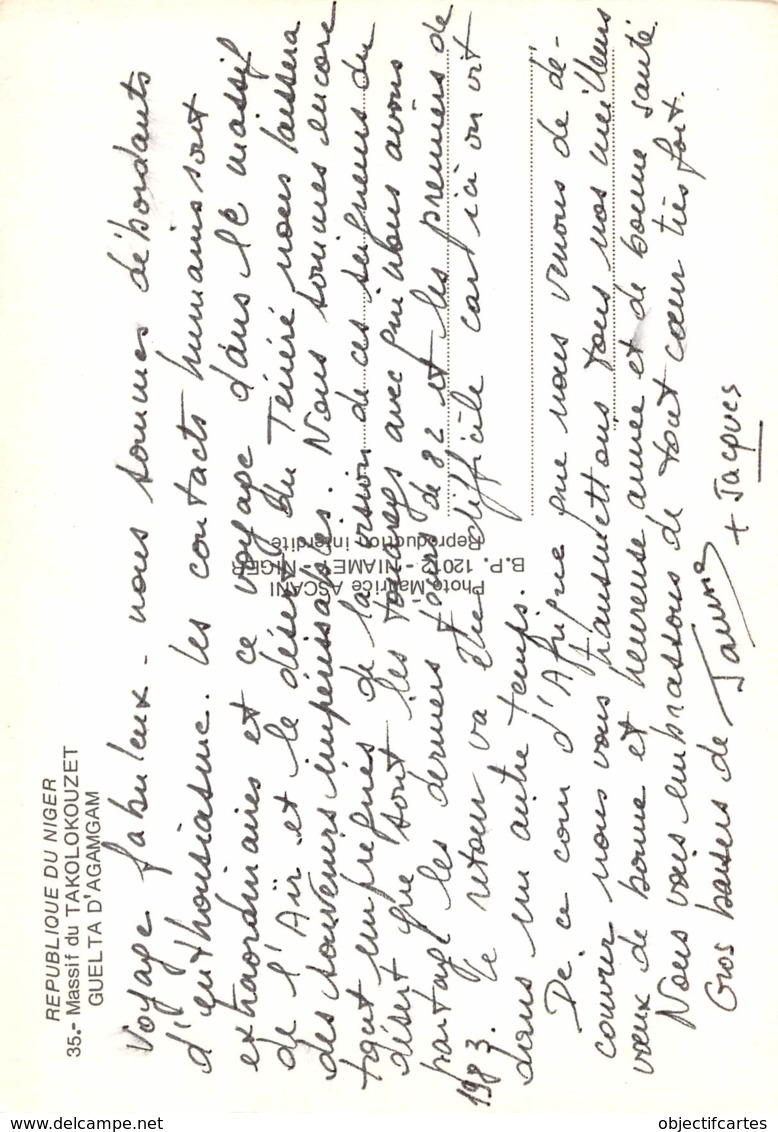 REPUBLIQUE DU NIGER
35.- Massif du TAKOLOKOUZET
GUELTA D'AGAMGAM
Voyage fabuleux - nous sommes débordants
d'enthousiasme. Les contacts humains sont
extraordinaires et ce voyage dans le massif
de l'Aïr et le désert du Ténéré nous laissera
des souvenirs impérissables. Nous sommes encore
tout imprégnés de la vision de ces seigneurs du
désert que sont les touaregs avec qui nous avons
partagé les derniers jours de 82 et les premiers de
1983. Le retour va être difficile car ici on vit
dans un autre temps.
De ce coin d'Afrique que nous venons de dé-
couvrir nous vous transmettons tous nos meilleurs
vœux de bonne et heureuse année et de bonne santé.
Nous vous embrassons de tout cœur très fort.
Gros baisers de + Jacques
Photo Maurice ASCANI
B.P. 12012 - NIAMEY - NIGER
Reproduction interdite
www.delcampe.net
objectifcartes